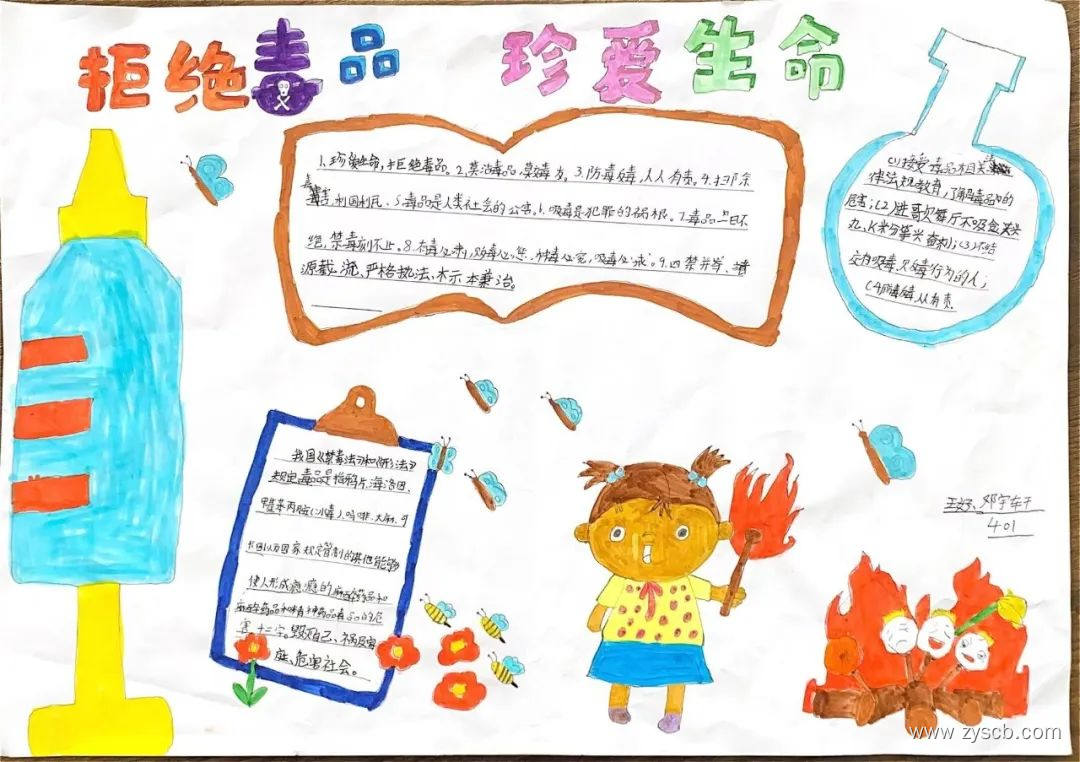 拒绝毒品 珍爱生命
1、珍爱生命,拒绝毒品。2、莫沾毒品,莫贩毒为。3、防毒反毒,人人有责。4、扫除
毒害,利国利民。5、毒品是人类社会的公害。6、吸毒是犯罪的祸根。7、毒品一日不
绝,禁毒刻不止。8、
9、四禁并举、堵
源截流、严格执法、标本兼治。
(1)接受毒品相关
律法规教育,了解毒品的
危害;(2)进歌舞厅不吸食
丸、K粉等兴奋剂;(3)不结
交有吸毒、贩毒行为的人;
(4)防毒反毒,人人有责.
我国《禁毒法》和《刑法》
规定毒品是指鸦片、海洛因、
甲基苯丙胺(冰毒)、吗啡、大麻、可
卡因以及国家规定管制的其他能够
使人形成瘾癖的麻醉药品和
害十二字。毁灭自己、祸及家
庭、危害社会。
401
www.zyscb.com